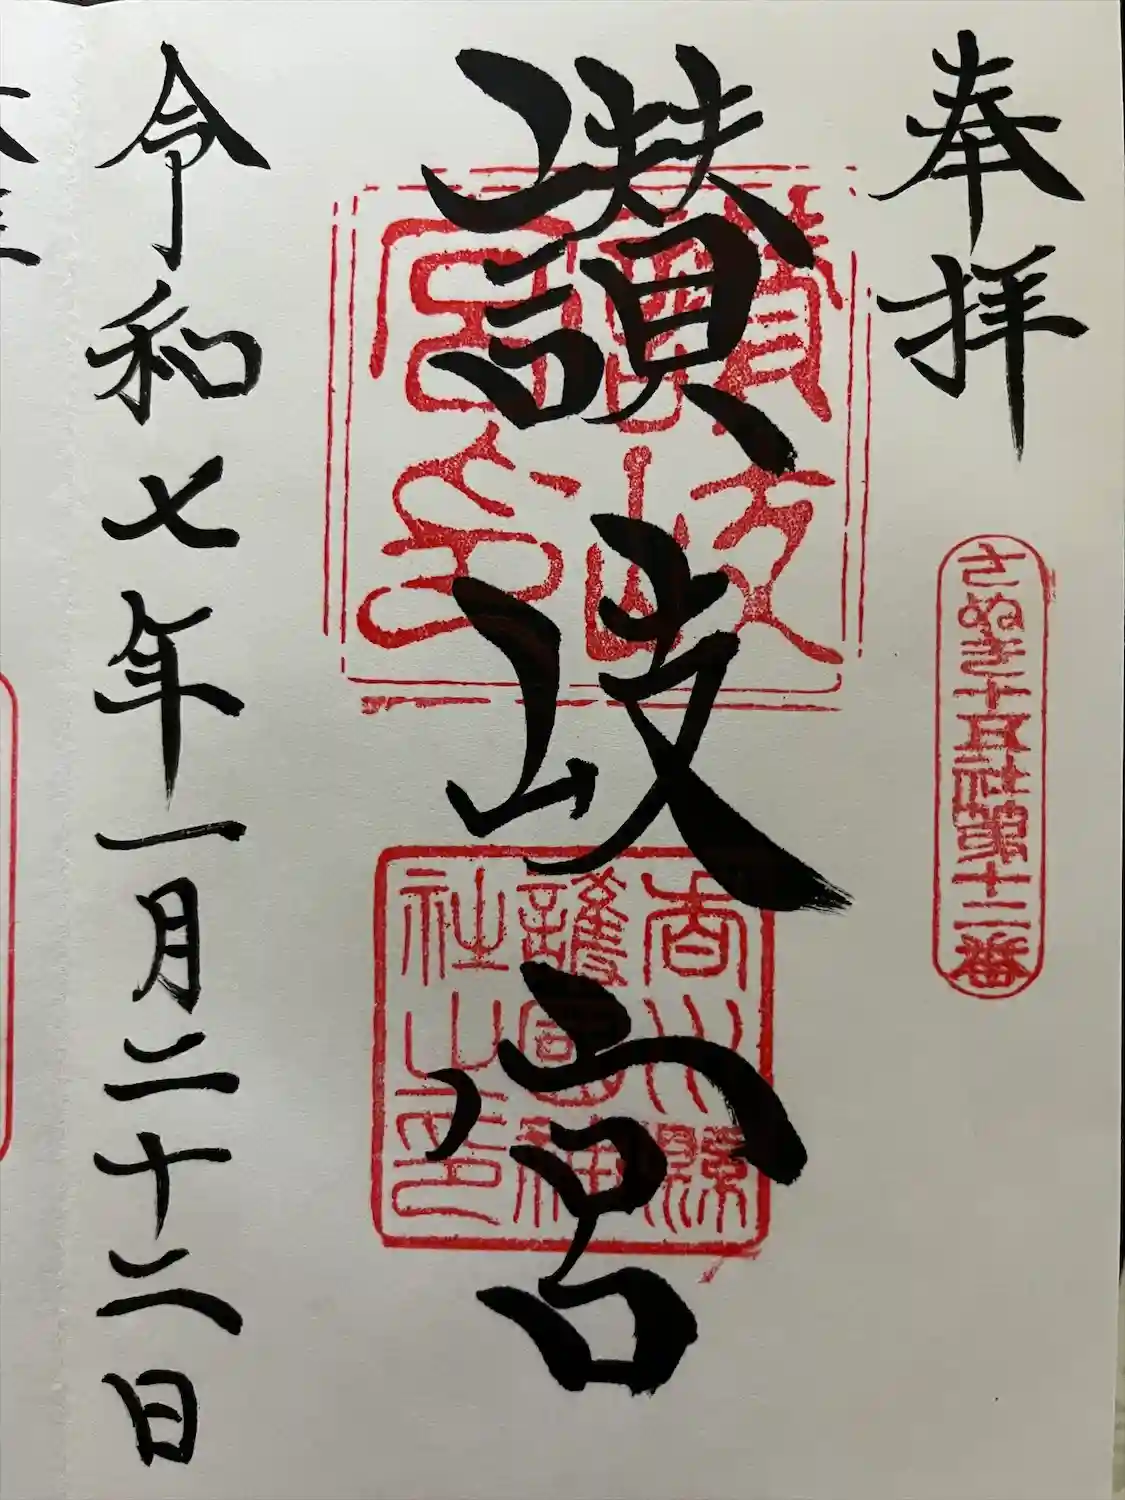 奉拝
さぬき十五社第十二番
讃岐宮
讃岐宮印
香川縣護國神社之印
令和七年一月二十二日